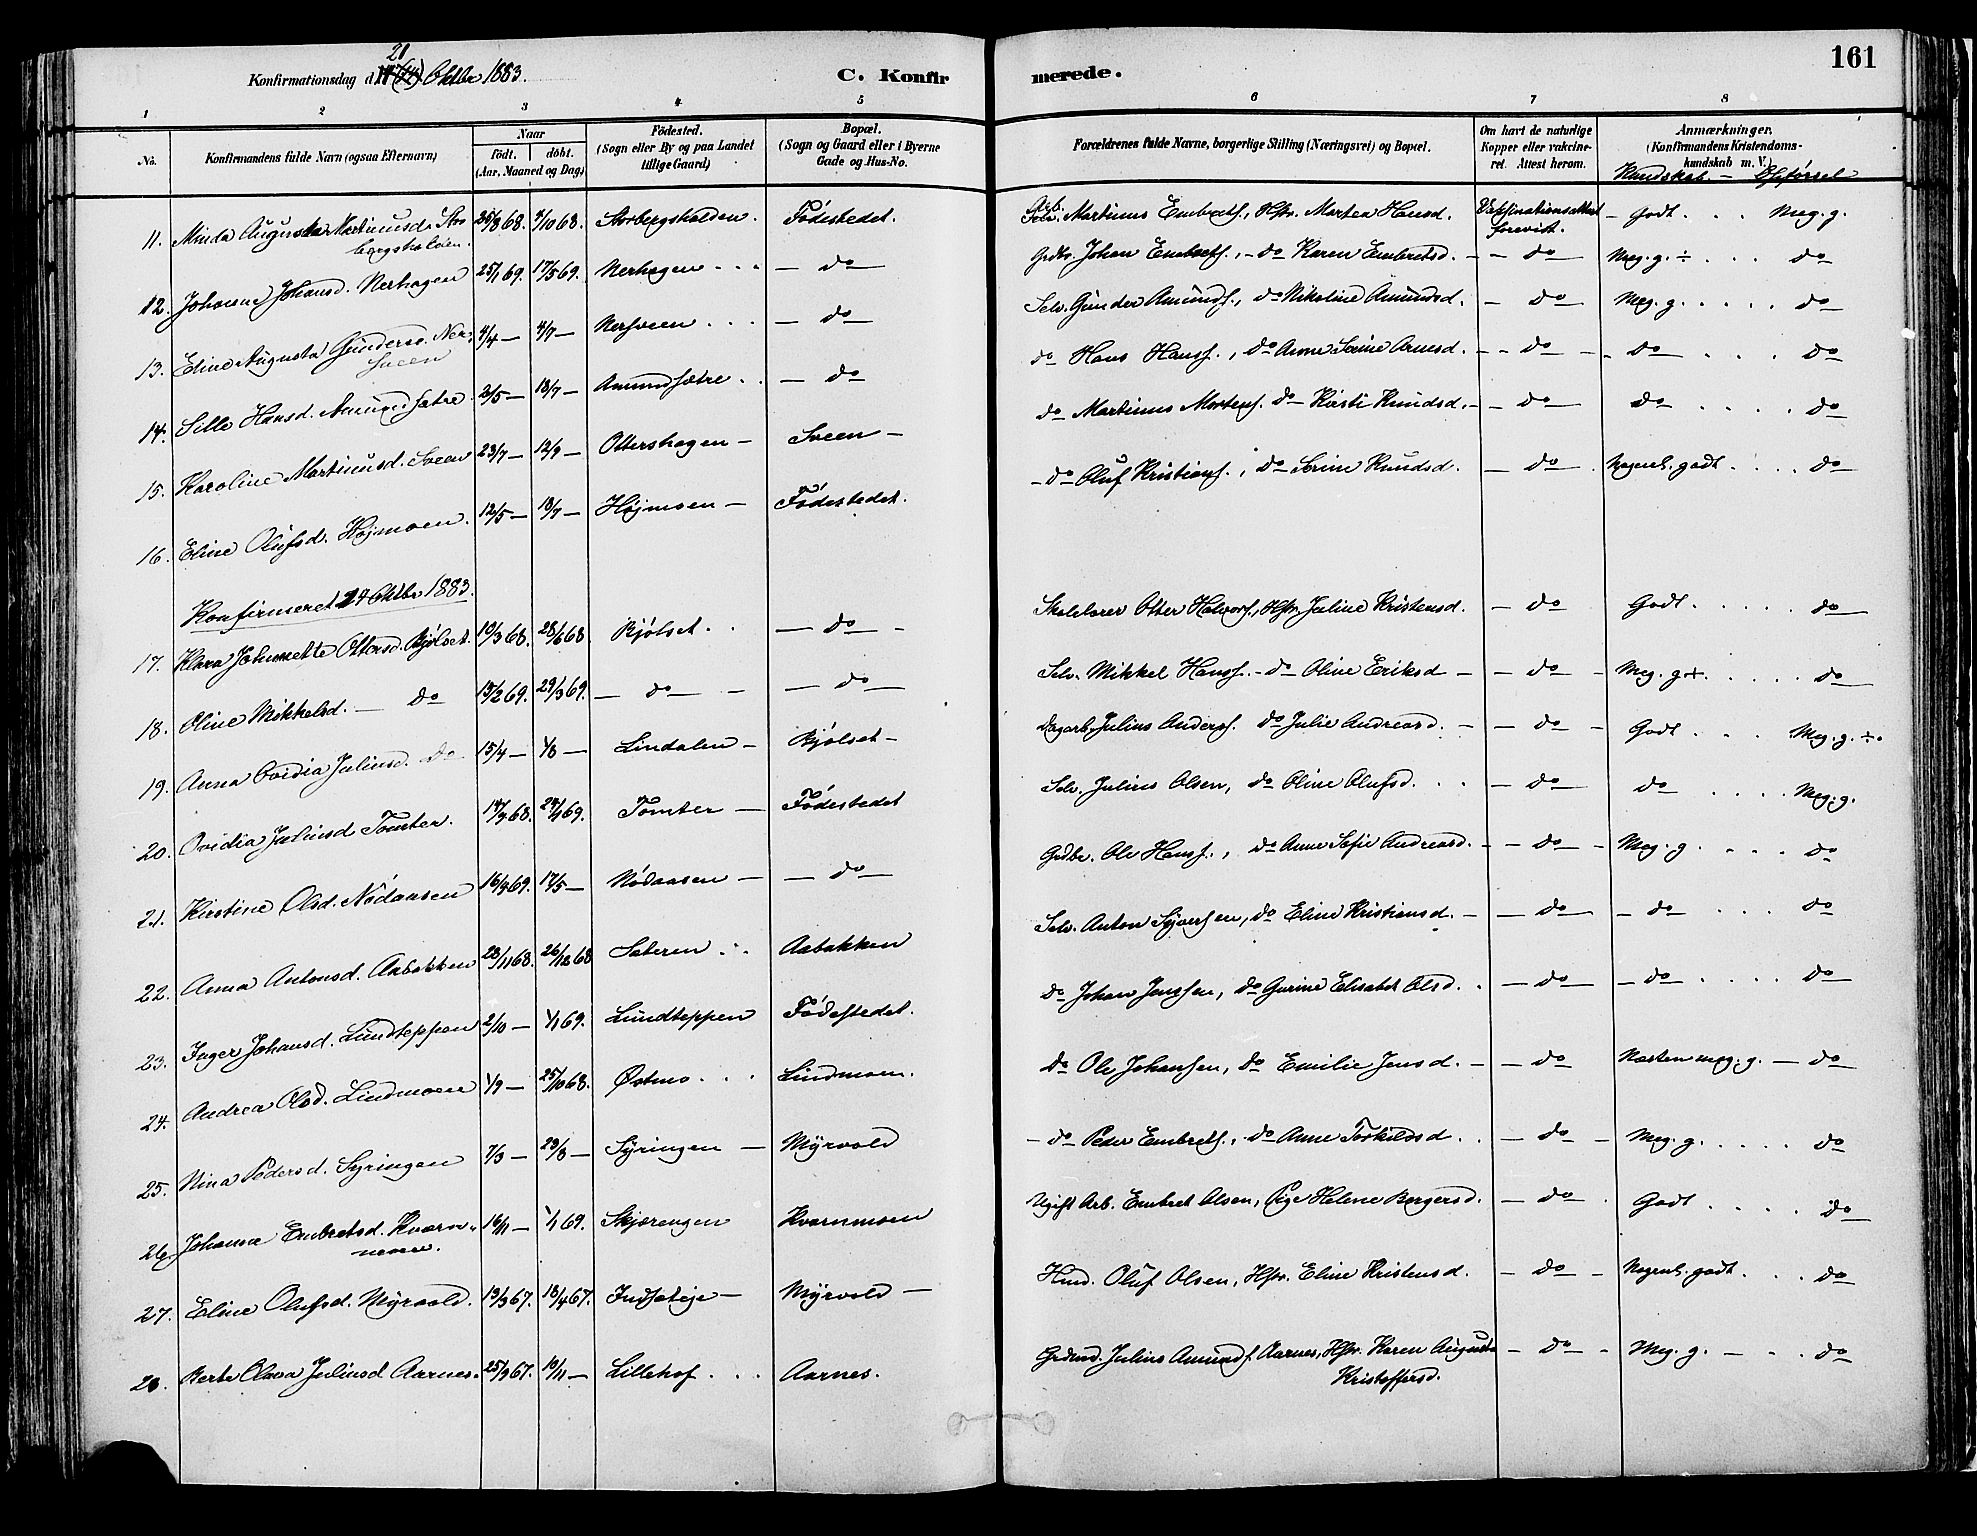 161
21
Konfirmationsdag d. Oktbr 1883.
C. Konfirmerede.
1 2 3 4 5 6 7 8
No.
Konfirmandens fulde Navn (ogsaa Efternavn)
Naar
födt. döbt.
(Aar, Maaned og Dag)
Födested.
(Sogn eller By og paa Landet
tillige Gaard)
Bopæl.
(Sogn og Gaard eller i Byerne
Gade og Hus-No.
Forældrenes fulde Navne, borgerlige Stilling (Næringsvei) og Bopæl.
Om havt de naturlige
Kopper eller vakcine-
ret. Attest herom.
Anmærkninger.
(Konfirmandens Kristendoms-
kundskab m. V.)
Kundskab. — Opførsel
11. Minda Augusta Martinusd. Stor- 25/8 68. 4/10 68. Storbergshalden. Fødestedet. Martinus Embretss., Hstr. Martea Hansd. Vaksinationsattest — Godt . . Meg. g.
bergshalden. forevist.
12. Johanne Johansd. Nerhagen 25/1 69. 17/5 69. Nerhagen . . . — do — Grdbr. Johan Embrets., — do Karen Embretsd. — do — Meg. g. ÷ . . . do
13. Eline Augusta Gundersd. Ner- 4/4 — 4/7 — Nersveen . . . — do — Selv. Gunder Amunds., do Nikoline Amundsd. — do — Meg. g. . . . . do
sveen
14. Sille Hansd. Amundsætre 2/5 — 18/7 — Amundsætre . . — do — do Hans Hanss., do Anne Serine Arnesd. — do — — do . . . do
15. Karoline Martinusd. Sveen 23/7 — 12/9 — Ottershagen — Sveen — do Martinus Mortens. do Kirsti Knudsd. — do — do . . . . do
16. Eline Olufsd. Højmoen. 12/5 — 18/7 — Højmoen — Fødestedet. — do Oluf Kristians., do Serine Knudsd. — do . Nogenl. godt . . . . do
Konfirmeret 24 Oktbr 1883.
17. Klara Johannette Ottersd. Kjølset. 10/3 68. 28/6 68. Kjølset . . — do — Skolelærer Otter Halvors., Hstr. Juline Kristensd. — do Godt . . . . . do
18. Oline Mikkelsd. — do 15/2 69. 29/3 69. — do — — do — Selv. Mikkel Hanss. — do Oline Eriksd — — do — Meg. g +. . . . . do
19. Anna Ovidia Juliusd. do 15/4 — 1/8 — Lindalen — Kjølset — Dagarb. Julius Anderss. do Julie Andreasd. — — do — Godt . . . Meg. g. ÷.
20. Ovidia Juliusd Tomter. 24/1 69. Tomter — Fødestedet Selv. Julius Olsen, do Oline Olufsd. . . . — do — do . . . . Meg. g.
21. Kirstine Olsd. Nødaasen 17/5 — Nødaasen — — do — Grdbr. Ole Hanss., do Anne Sofie Andreasd. — — do — Meg. g. . . . do
22. Anna Antonsd. Aabakken 23/11 68. 26/12 68 Sæteren . . Aabakken Selv. Anton Syversen, do Eline Kristiansd. — — do — — do — . . . do
23. Inger Johansd. Lundteppen 2/10 — 1/1 69. Lundteppen Fødestedet. do Johan Jenssen, do Gurine Elisabet Olsd . — do — — do — . . . . do
24. Andrea Olsd. Lindmoen 1/9 — 25/10 68. Østmo . . . Lindmoen. do Ole Johansen, do Emilie Jensd. — — do Næsten meg. g. — do
25. Nina Pedersd. Syringen 7/3 — 23/8 — Syringen — Myrvold — do Peder Embrets., do Anne Torkildsd . . — do — Meg. g. . . . . do
26. Johanna Embretsd. Kværn- 16/11 — 1/1 69. Skjærengen Kværnmoen Ugift Arb. Embret Olsen, Pige Helene Borgersd. — do . Godt . . . . do
moen.
27. Eline Olufsd. Myrvold. 19/3 67. 18/4 67. Indsæteje — Myrvold — Hmd. Oluf Olsen, Hstr. Eline Kristensd. — do — Nogenl. godt . . . do
28. Berte Olava Juliusd Aarnes. 25/9 67. 10/11 — Lillehof . . . Aarnes. Grdmd. Julius Amunds. Aarnes, Hstr. Karen Augusta — do — Meg. g. — . . do
Kristoffersd.